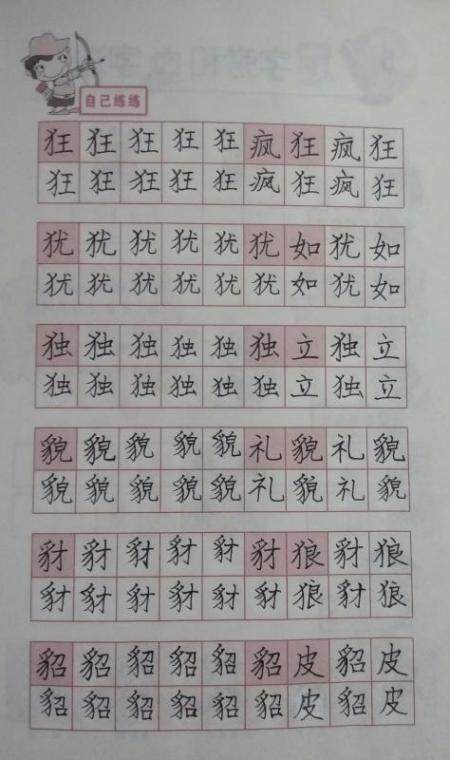 自己练练
狂狂狂狂狂疯狂疯狂
狂狂狂狂狂疯狂疯狂
犹犹犹犹犹犹如犹如
犹犹犹犹犹犹如犹如
独独独独独独立独立
独独独独独独立独立
貌貌貌貌貌礼貌礼貌
貌貌貌貌貌礼貌礼貌
豺豺豺豺豺豺狼豺狼
豺豺豺豺豺豺狼豺狼
貂貂貂貂貂貂皮貂皮
貂貂貂貂貂貂皮貂皮